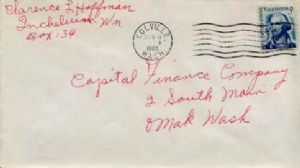 Clarence L Hoffman
Inchelium Wn
Box 34
COLVILLE
WASH.
Capital Finance Company
2 South Main
OMak Wash